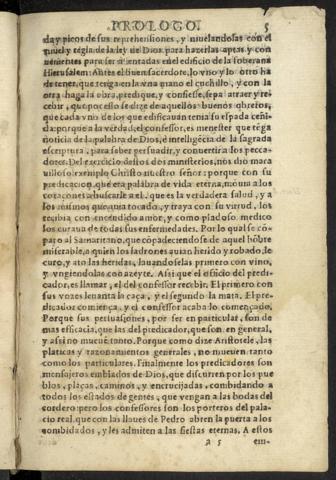 PROLOGO. 5
da,y picos de sus reprehensiones, y niuelandolas con el
niuel, y regla de la ley de Dios, para hazerlas aptas, y con
uenientes para ser assentadas en el edificio de la soberana
Hierusalem: Antes el buen sacerdote, lo vno y lo otro ha
de tener, que tenga en la vna mano el cuchillo, y con la
otra haga la obra, predique, y confiesse, sepa atraer y re-
cebir, que por esso se dize de aquellos buenos obreros,
que cada vno de los que edificauan tenia su espada ceñi-
da: porque a la verdad, el confessor, es menester que tẽga
noticia de la palabra de Dios, e intelligẽcia de la sagrada
escriptura, para saber persuadir, y conuertir a los pecca-
dores. Del exercicio destos dos ministerios, nos dio mara
uilloso exemplo Christo nuestro señor: porque con su
predicacion, que era palabra de vida eterna, mouia a los
coraçones a buscarle a el, que es la verdadera salud, y a
los mismos que auia tocado, y trayа con su virtud, los
recibia con encendido amor, y como piadoso medico
los curaua de todas sus enfermedades. Por lo qual se cõ-
paro al Samaritano, que cõpadeciendose de aquel hõbre
miserable, a quien los ladrones auian herido y robado, le
curo, y ato las heridas, lauandoselas primero con vino,
y vngiendolas con azeyte. Assi que el officio del predi-
cador, es llamar, el del confessor recebir. El primero con
sus vozes leuanta la caça, y el segundo la mata. El pre-
dicador comiença, y el confessor acaba lo començado.
Porque sus persuasiones, por ser en particular, son de
mas efficacia, que las del predicador, que son en general,
y assi no mueuẽ tanto. Porque como dize Aristotele, las
platicas y razonamientos generales, no mueuen tanto
como los particulares. Finalmente los predicadores son
mensajeros embiados de Dios, que discurren por los pue
blos, plaças, caminos, y encrucijadas, combidando a
todos los estados de gentes, que vengan a las bodas del
cordero: pero los confessores son los porteros del pala-
cio real, que con las llaues de Pedro abren la puerta a los
combidados, y les admiten a las fiestas eternas. A estos
a 5